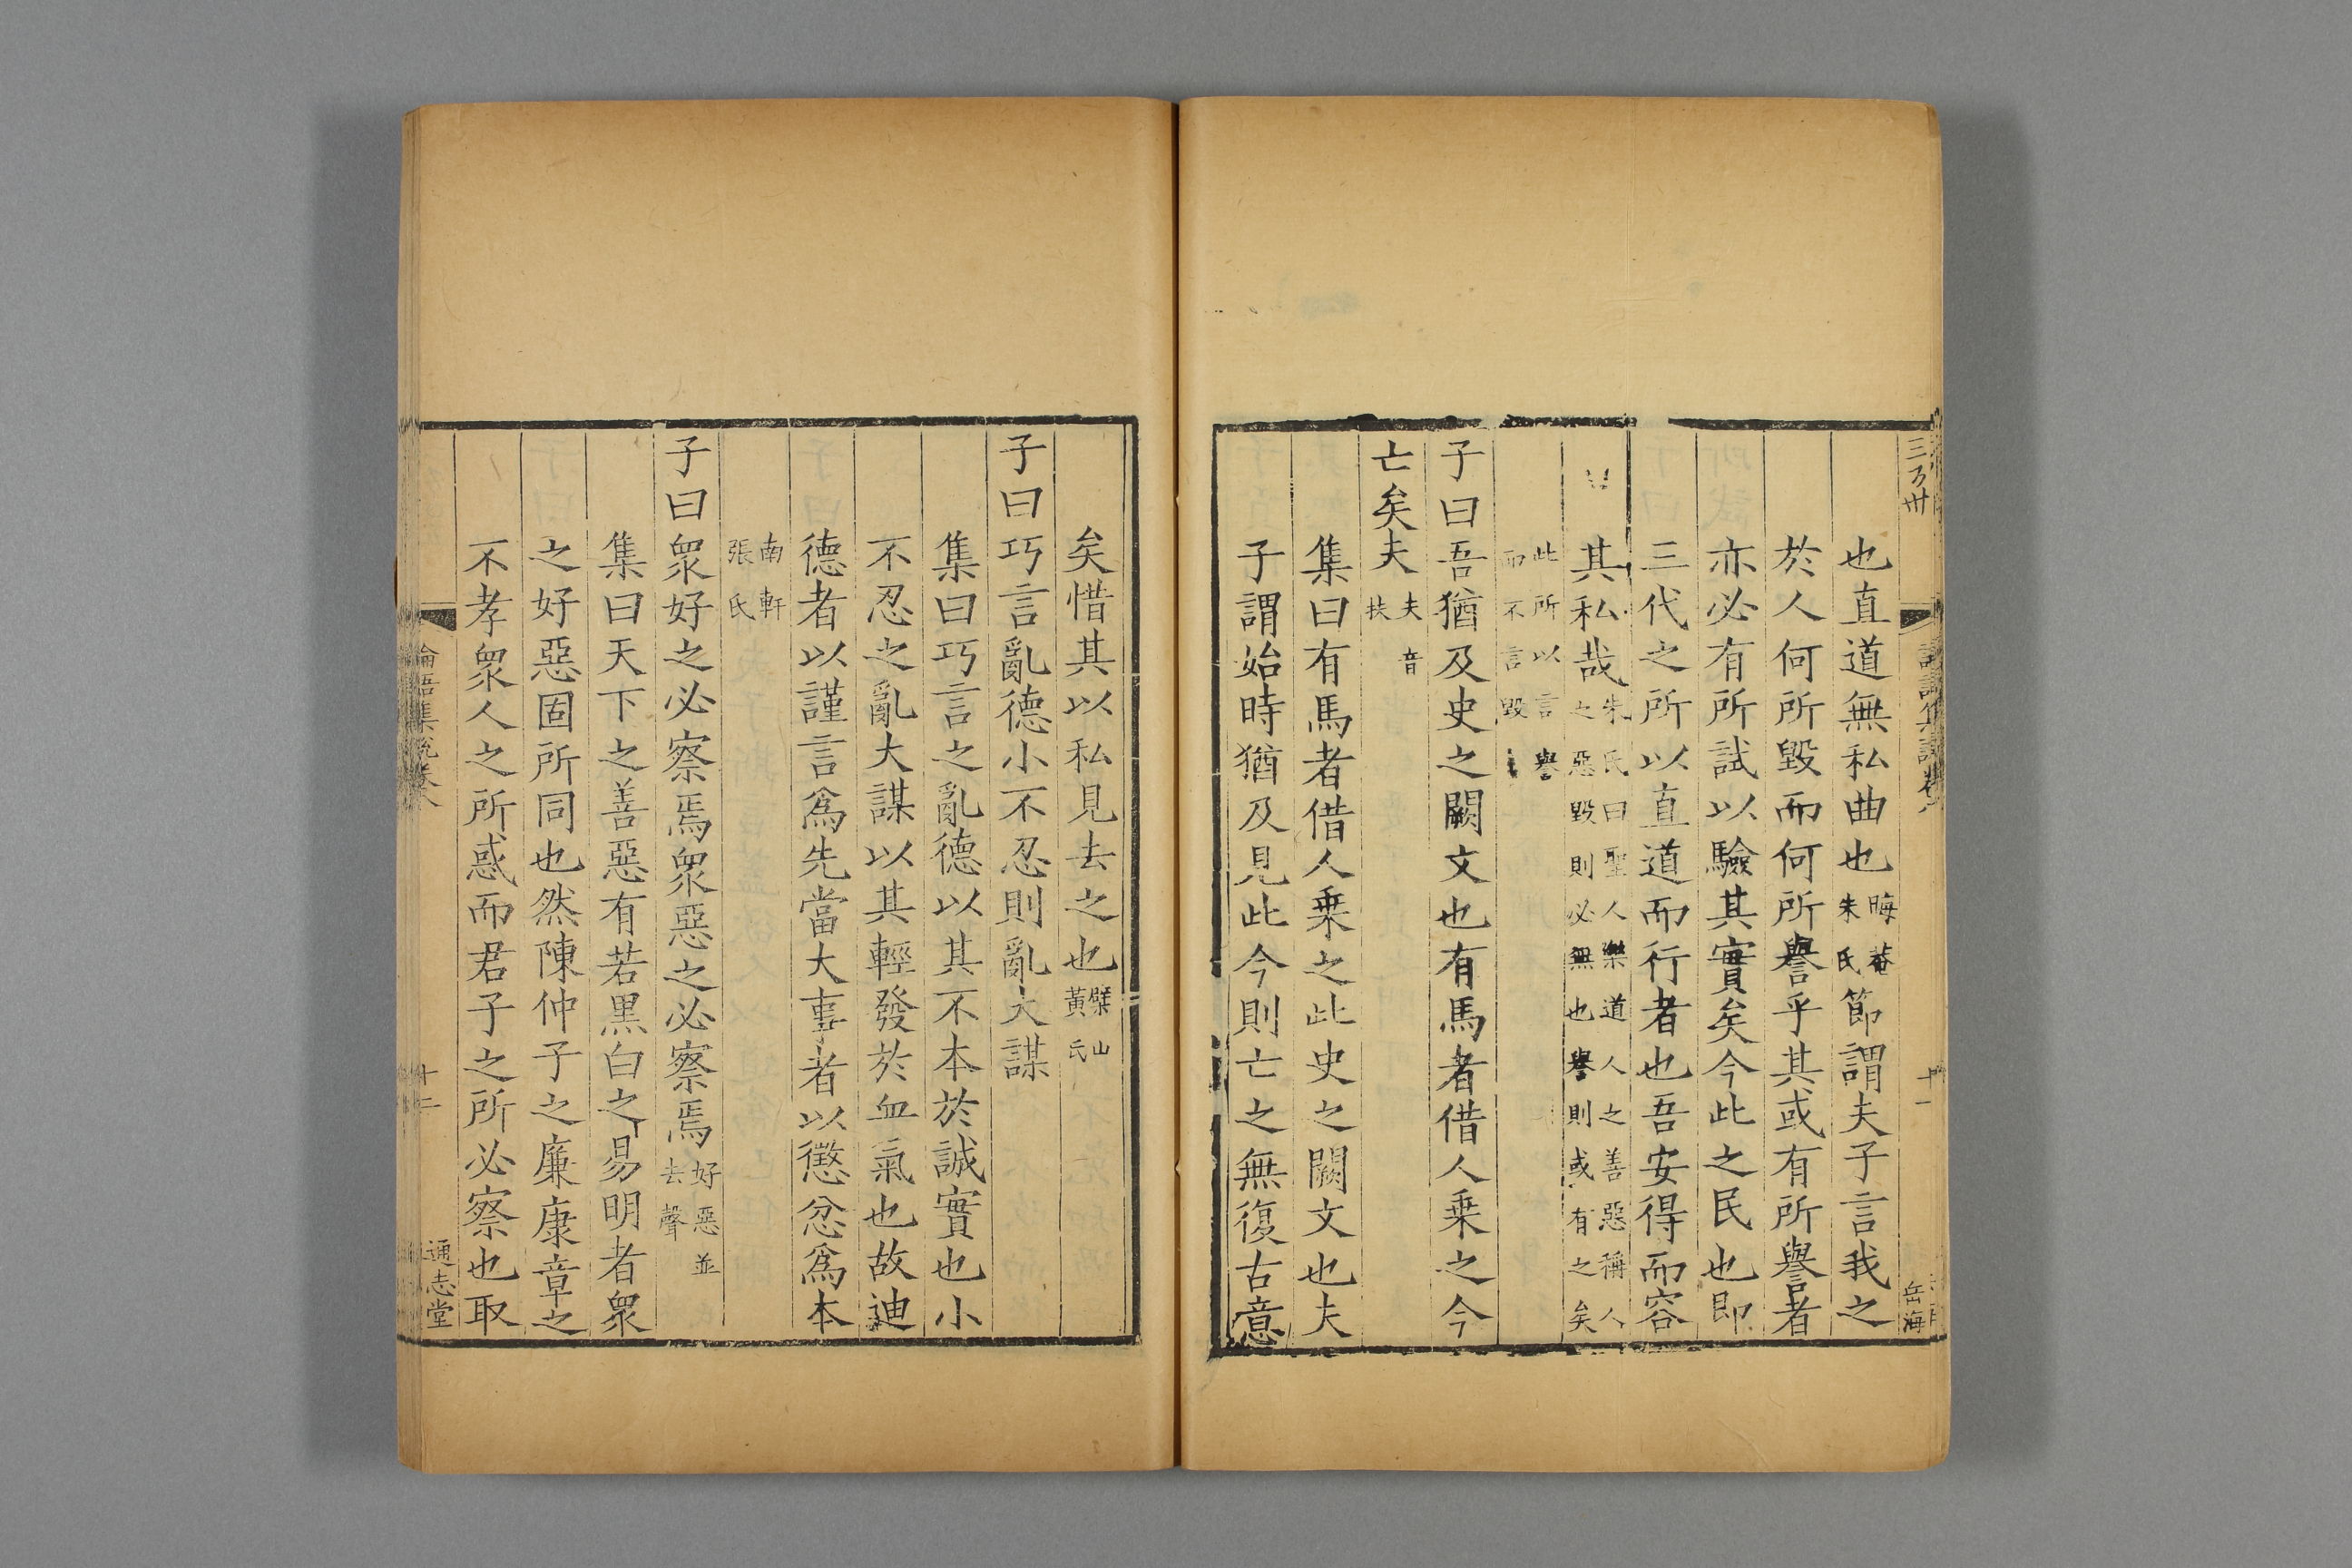 也直道無私曲也晦菴朱氏節謂夫子言我之
於人何所毀而何所譽乎其或有所譽者
亦必有所試以驗其實矣今此之民也即
三代之所以直道而行者也吾安得而容
其私哉朱氏曰聖人樂道人之善惡稱人之惡毀則必無也譽則或有之矣
此所以言譽而不言毀
子曰吾猶及史之闕文也有馬者借人乗之今
亡矣夫夫音扶
集曰有馬者借人乗之此史之闕文也夫
子謂始時猶及見此今則亡之無復古意
矣惜其以私見去之也檗山黃氏
子曰巧言亂德小不忍則亂大謀
集曰巧言之亂德以其不本於誠實也小
不忍之亂大謀以其輕發於血氣也故迪
德者以謹言為先當大事者以懲忿為本
南軒張氏
子曰衆好之必察焉衆惡之必察焉好惡並去聲
集曰天下之善惡有若黑白之易明者衆
之好惡固所同也然陳仲子之廉康章之
不孝衆人之所惑而君子之所必察也取
論語集說卷八
十二
通志堂